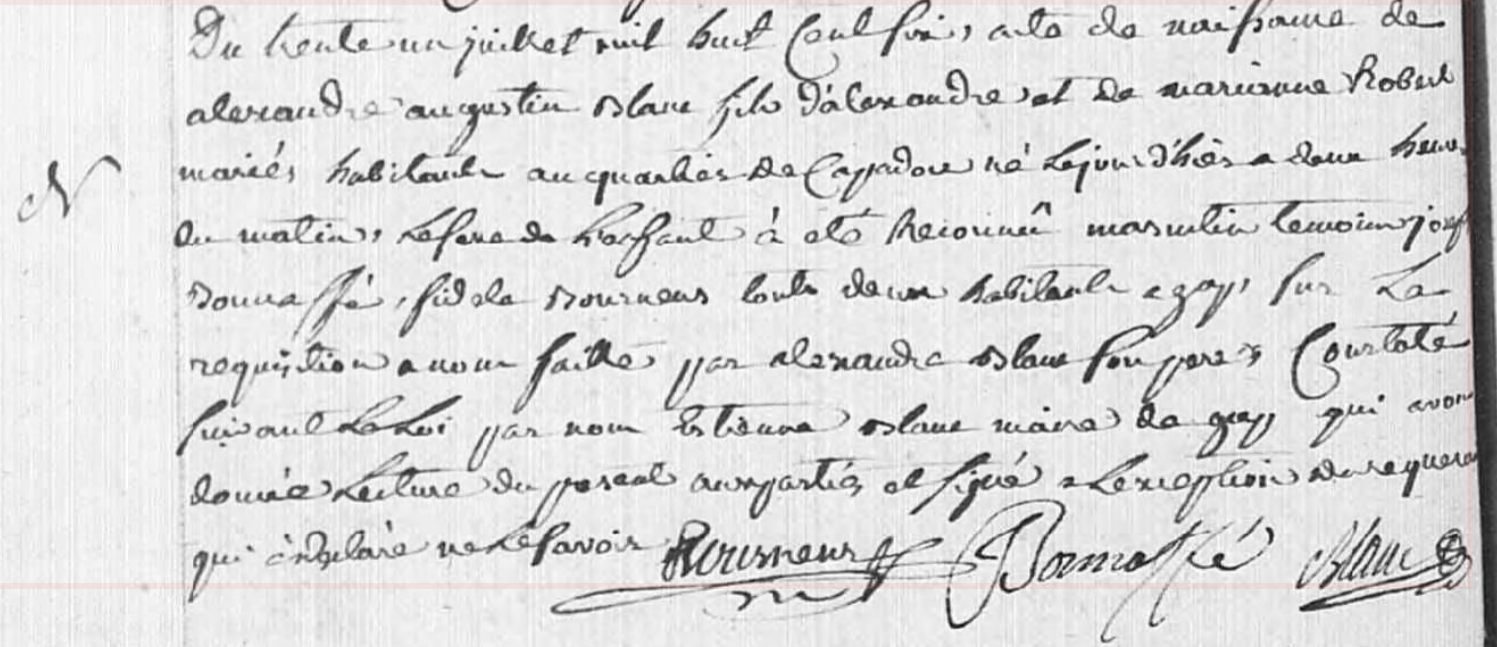 Du trente un juillet mil huit Cent six, acte de naissance de
alexandre augustin Blanc fils d'alexandre et de marianne Robert
mariés habitants au quartier de Capadoce né le jour d'hièr a deux heures
du matin, le sexe de L'enfant à été Reconnû masculin temoins josef
Bonnaffé, fidele Bourneus touts deux habitants a gap, sur La
requisition a nous faitte par alexandre Blanc son pere, Constaté
suivant La Loi par nous Estienne Blanc maire de gap qui avons
donnée Lecture du present aux parties et signé a L'exception du requerant
qui à déclaré ne le savoir Bourneus Bonnaffé Blanc
N